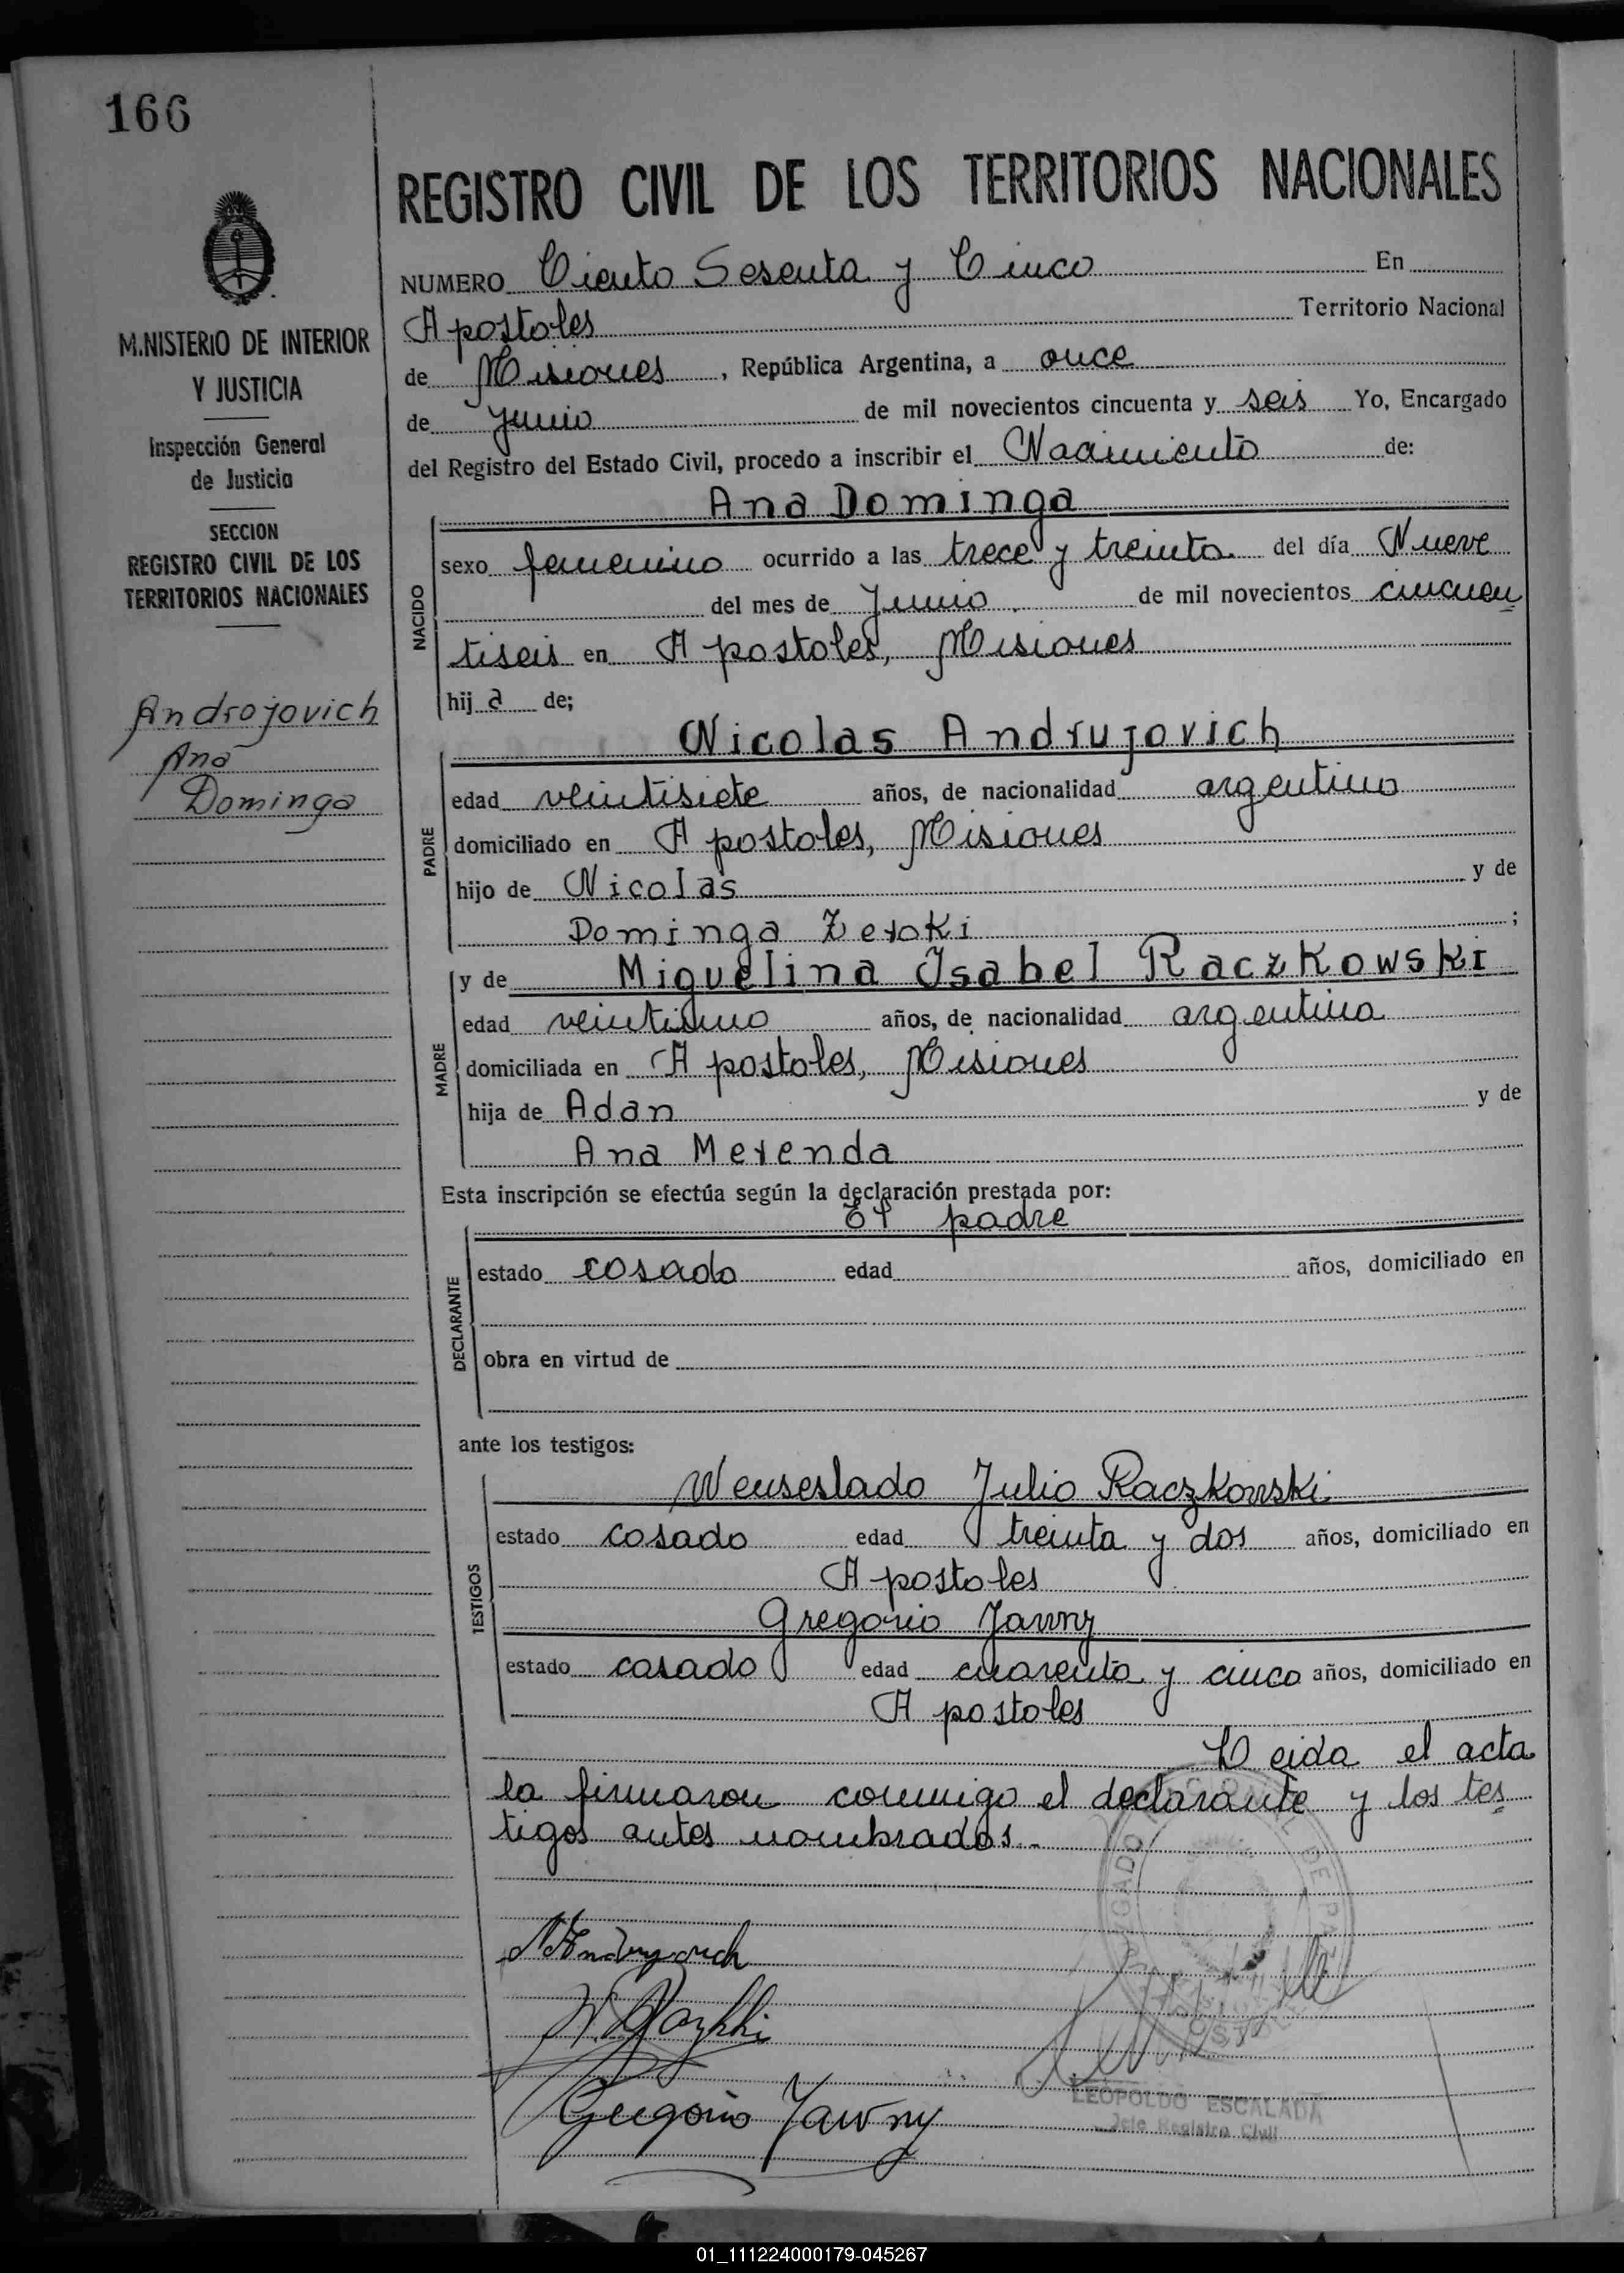 166
REGISTRO CIVIL DE LOS TERRITORIOS NACIONALES
NUMERO Ciento Sesenta y Cinco En
Apostoles Territorio Nacional
de Misiones, República Argentina, a once
de junio de mil novecientos cincuenta y seis Yo, Encargado
del Registro del Estado Civil, procedo a inscribir el Nacimiento de:
M.NISTERIO DE INTERIOR
Y JUSTICIA
Inspección General
de Justicia
SECCION
REGISTRO CIVIL DE LOS
TERRITORIOS NACIONALES
Androjovich
Ana
Dominga
NACIDO
Ana Dominga
sexo femenino ocurrido a las trece y treinta del día Nueve
del mes de Junio de mil novecientos cincuen
tiseis en Apostoles, Misiones
hija de;
PADRE
Nicolas Andrujovich
edad veintisiete años, de nacionalidad argentino
domiciliado en Apostoles, Misiones
hijo de Nicolas y de
Dominga Zeroki ;
MADRE
y de Miguelina Isabel Raczkowski
edad veintiuno años, de nacionalidad argentina
domiciliada en Apostoles, Misiones
hija de Adan y de
Ana Merenda
Esta inscripción se efectúa según la declaración prestada por:
El padre
DECLARANTE
estado casado edad años, domiciliado en
obra en virtud de
ante los testigos:
TESTIGOS
Wenseslado Julio Raczkowski
estado casado edad treinta y dos años, domiciliado en
Apostoles
Gregorio Jawny
estado casado edad cuarenta y cinco años, domiciliado en
Apostoles
Leida el acta
la firmaron conmigo el declarante y los tes
tigos antes nombrados.-
N Andrujovich
Gregorio Jawny
LEOPOLDO ESCALADA
Jefe Registro Civil
01_111224000179-045267